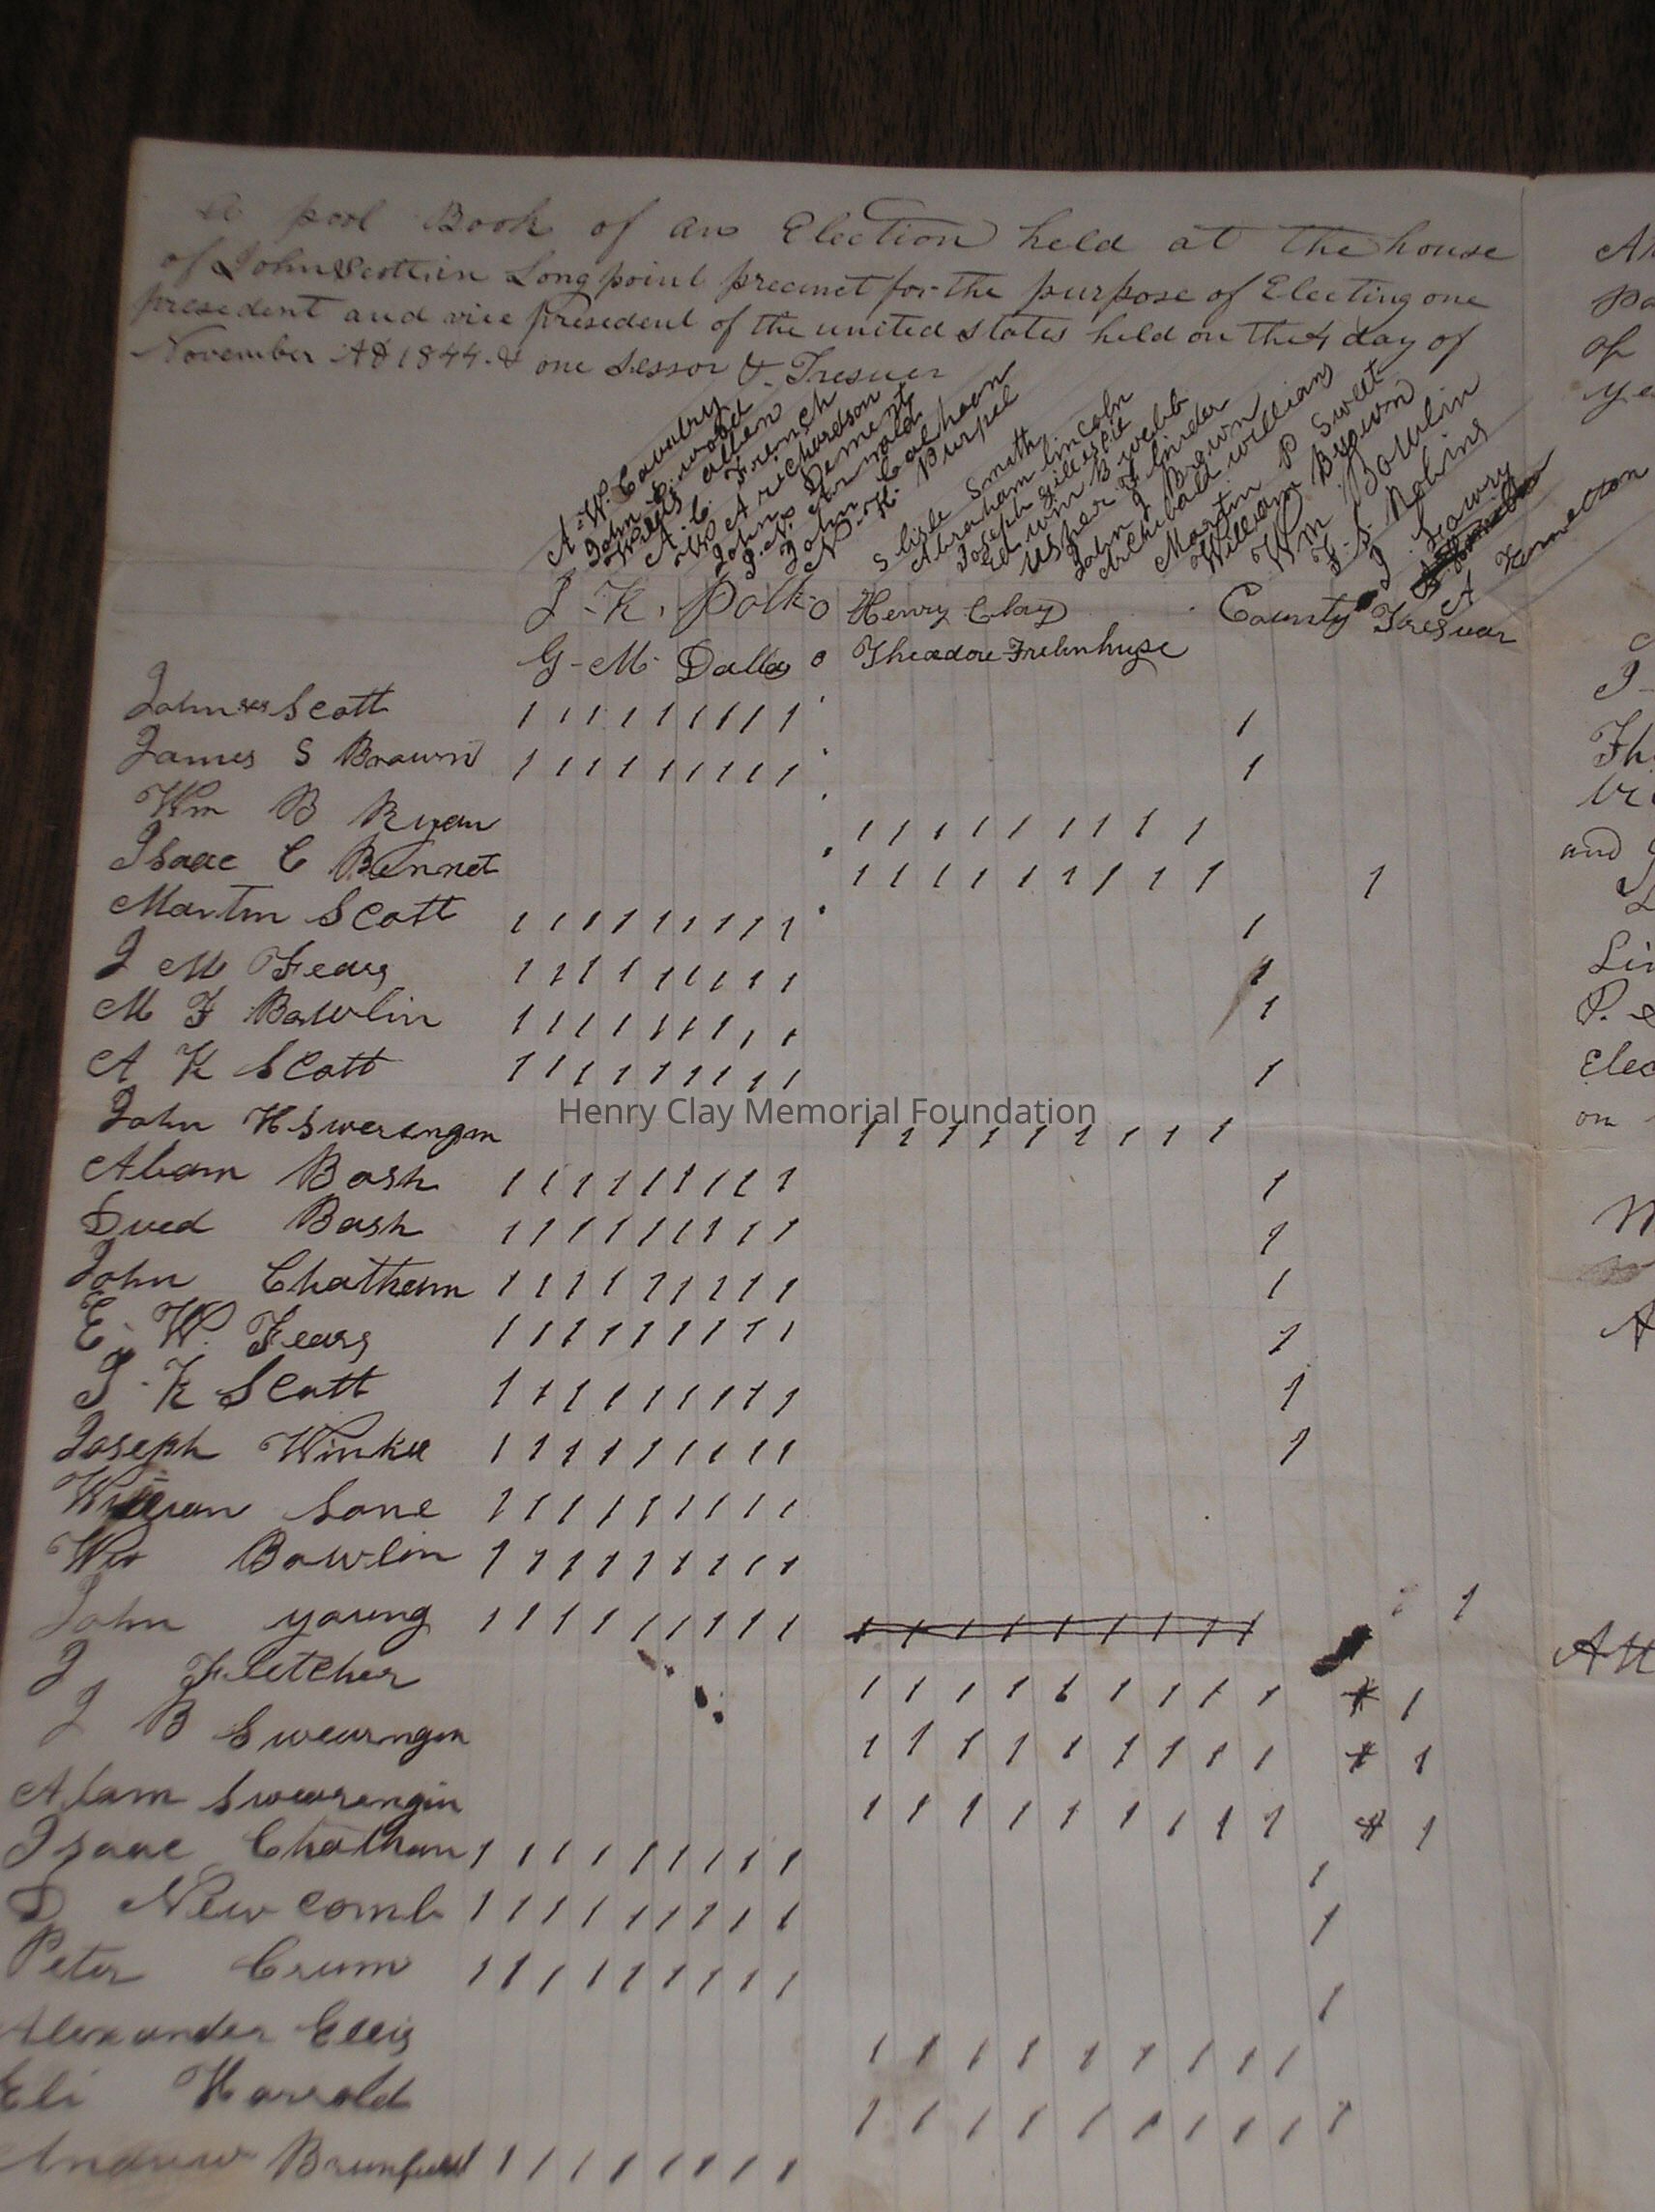 A pool Book of an Election held at the house
of John Scott in Longpoint precinct for the purpose of Electing one
presedent and vice presedent of the united states held on the 4 day of
November AD 1844 & one Sessor & Tresuer
A. W. Cavarly
John D. Wood
Willis allen
A. C. French
W A richardson
John Dement
J. N. Arnnold
John Calhoon
N. H. Purpel
S lisle Smith
Abraham lincoln
Joseph gillespie
Edwin B webb
Usher F linder
John J Brown
Archibald williams
Martin P Sweet
William Brown
Wm Bowlin
F. S. Nobins
J Lowry
A Hamelton
J. K. Polk Henry Clay County Tresuar
G-M. Dallas Theadore Frelinhuse
John Scott 1 1 1 1 1 1 1 1 1 1
James S Brown 1 1 1 1 1 1 1 1 1 1
Wm B Ryan 1 1 1 1 1 1 1 1 1
Isaac C Bennet 1 1 1 1 1 1 1 1 1 1
Martin Scott 1 1 1 1 1 1 1 1 1 1
J M Fears 1 1 1 1 1 1 1 1 1 1
M F Bowlin 1 1 1 1 1 1 1 1 1 1
A K Scott 1 1 1 1 1 1 1 1 1 1
Henry Clay Memorial Foundation
John H Swerengin 1 1 1 1 1 1 1 1 1
Abam Bash 1 1 1 1 1 1 1 1 1 1
Dved Bash 1 1 1 1 1 1 1 1 1 1
John Chatham 1 1 1 1 1 1 1 1 1 1
E. W. Fears 1 1 1 1 1 1 1 1 1 1
J. K Scott 1 1 1 1 1 1 1 1 1 1
Joseph Winkle 1 1 1 1 1 1 1 1 1 1
William Sone 1 1 1 1 1 1 1 1 1
Wm Bowlin 1 1 1 1 1 1 1 1 1
John young 1 1 1 1 1 1 1 1 1 1
J Fletcher 1 1 1 1 1 1 1 1 1 1
J B Sweurngin 1 1 1 1 1 1 1 1 1 1
Abam Swewrengin 1 1 1 1 1 1 1 1 1 1
Isaac Chatham 1 1 1 1 1 1 1 1 1 1
D New comb 1 1 1 1 1 1 1 1 1 1
Peter Crum 1 1 1 1 1 1 1 1 1 1
Alexander Ellis 1 1 1 1 1 1 1 1 1
Eli Harrold 1 1 1 1 1 1 1 1 1 1
Andrew Brunfield 1 1 1 1 1 1 1 1 1
and
on